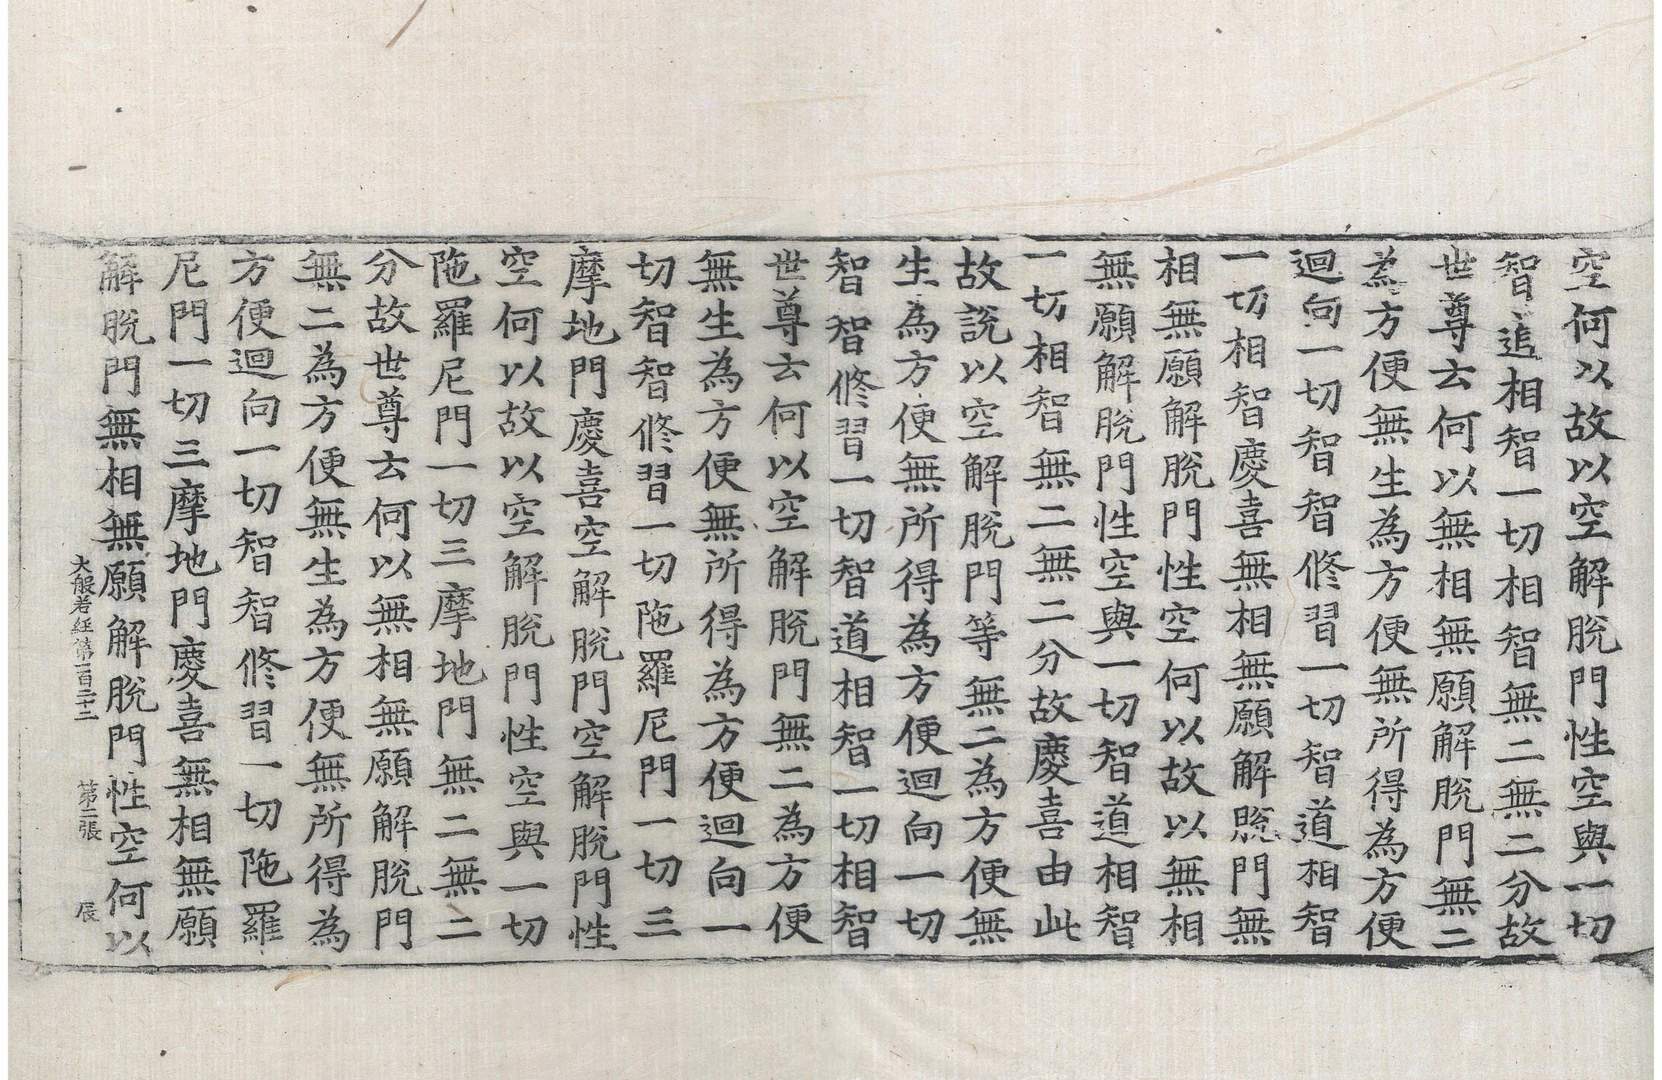 空何以故以空解脫門性空與一切
智道相智一切相智無二無二分故
世尊云何以無相無願解脫門無二
為方便無生為方便無所得為方便
迴向一切智智修習一切智道相智
一切相智慶喜無相無願解脫門無
相無願解脫門性空何以故以無相
無願解脫門性空與一切智道相智
一切相智無二無二分故慶喜由此
故說以空解脫門等無二為方便無
生為方便無所得為方便迴向一切
智智修習一切智道相智一切相智
世尊云何以空解脫門無二為方便
無生為方便無所得為方便迴向一
切智智修習一切陁羅尼門一切三
摩地門慶喜空解脫門空解脫門性
空何以故以空解脫門性空與一切
陁羅尼門一切三摩地門無二無二
分故世尊云何以無相無願解脫門
無二為方便無生為方便無所得為
方便迴向一切智智修習一切陁羅
尼門一切三摩地門慶喜無相無願
解脫門無相無願解脫門性空何以
大般若経第一百二十二 第二張 辰